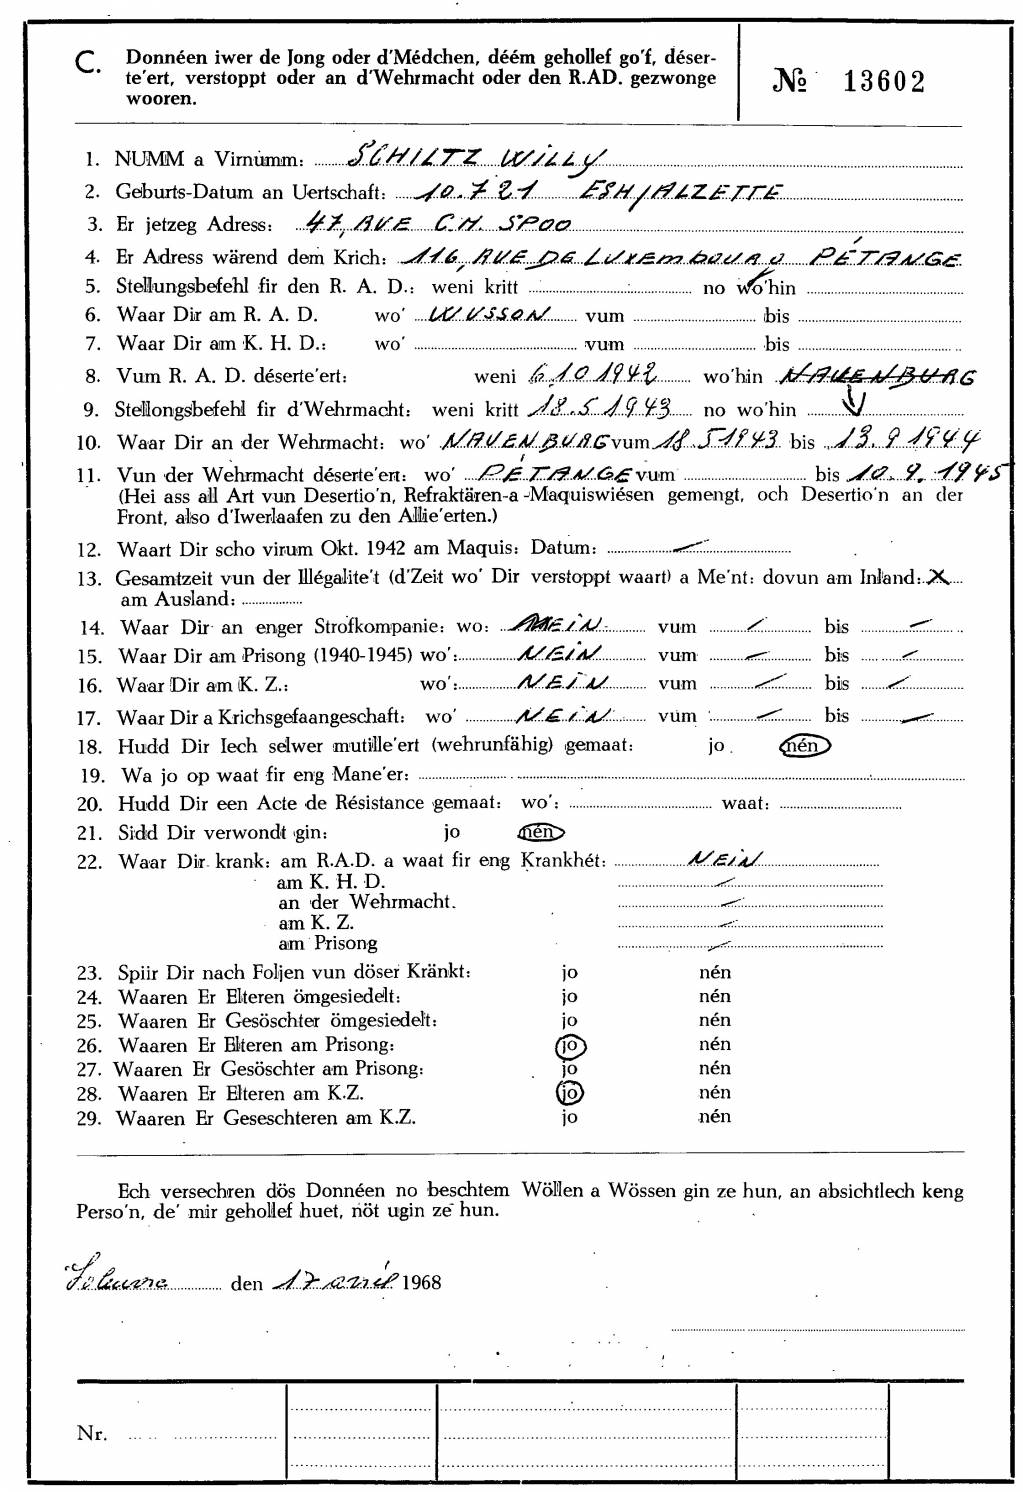 C. Donnéen iwer de Jong oder d'Médchen, déém gehollef go'f, déser-
te'ert, verstoppt oder an d'Wehrmacht oder den R.AD. gezwonge
wooren.
№ 13602
1. NUMM a Virnumm: SCHILTZ WILLY
2. Geburts-Datum an Uertschaft: 10.7 21 ESH/ALZETTE
3. Er jetzeg Adress: 47, AVE C.H. SPOO
4. Er Adress wärend dem Krich: 116, RUE DE LUXEMBOURG PÉTANGE
5. Stellungsbefehl fir den R. A. D.: weni kritt no wo'hin
6. Waar Dir am R. A. D. wo' WUSSON vum bis
7. Waar Dir am K. H. D.: wo' vum bis
8. Vum R. A. D. déserte'ert: weni 6.10 1942 wo'hin NAUENBURG
9. Stellongsbefehl fir d'Wehrmacht: weni kritt 18.5 1943 no wo'hin
10. Waar Dir an der Wehrmacht: wo' NAUENBURG vum 18.5 1943 bis 13.9 1944
11. Vun der Wehrmacht déserte'ert: wo' PÉTANGE vum bis 10.9.1945
(Hei ass all Art vun Desertio'n, Refraktären-a -Maquiswiésen gemengt, och Desertio'n an der
Front, also d'Iwerlaafen zu den Allie'erten.)
12. Waart Dir scho virum Okt. 1942 am Maquis: Datum: —
13. Gesamtzeit vun der Illégalite't (d'Zeit wo' Dir verstoppt waart) a Me'nt: dovun am Inland: X
am Ausland:
14. Waar Dir an enger Strofkompanie: wo: NEIN vum — bis —
15. Waar Dir am Prisong (1940-1945) wo': NEIN vum — bis —
16. Waar Dir am K. Z.: wo': NEIN vum — bis —
17. Waar Dir a Krichsgefaangeschaft: wo' NEIN vum — bis —
18. Hudd Dir Iech selwer mutille'ert (wehrunfähig) gemaat: jo nén
19. Wa jo op waat fir eng Mane'er:
20. Hudd Dir een Acte de Résistance gemaat: wo': waat:
21. Sidd Dir verwondt gin: jo nén
22. Waar Dir krank: am R.A.D. a waat fir eng Krankhét: NEIN
am K. H. D. —
an der Wehrmacht. —
am K. Z. —
am Prisong —
23. Spiir Dir nach Foljen vun döser Kränkt: jo nén
24. Waaren Er Elteren ömgesiedelt: jo nén
25. Waaren Er Gesöschter ömgesiedelt: jo nén
26. Waaren Er Elteren am Prisong: jo nén
27. Waaren Er Gesöschter am Prisong: jo nén
28. Waaren Er Elteren am K.Z. jo nén
29. Waaren Er Geseschteren am K.Z. jo nén
Ech versechren dös Donnéen no beschtem Wöllen a Wössen gin ze hun, an absichtlech keng
Perso'n, de' mir gehollef huet, nöt ugin ze hun.
den 17 avril 1968
Nr.